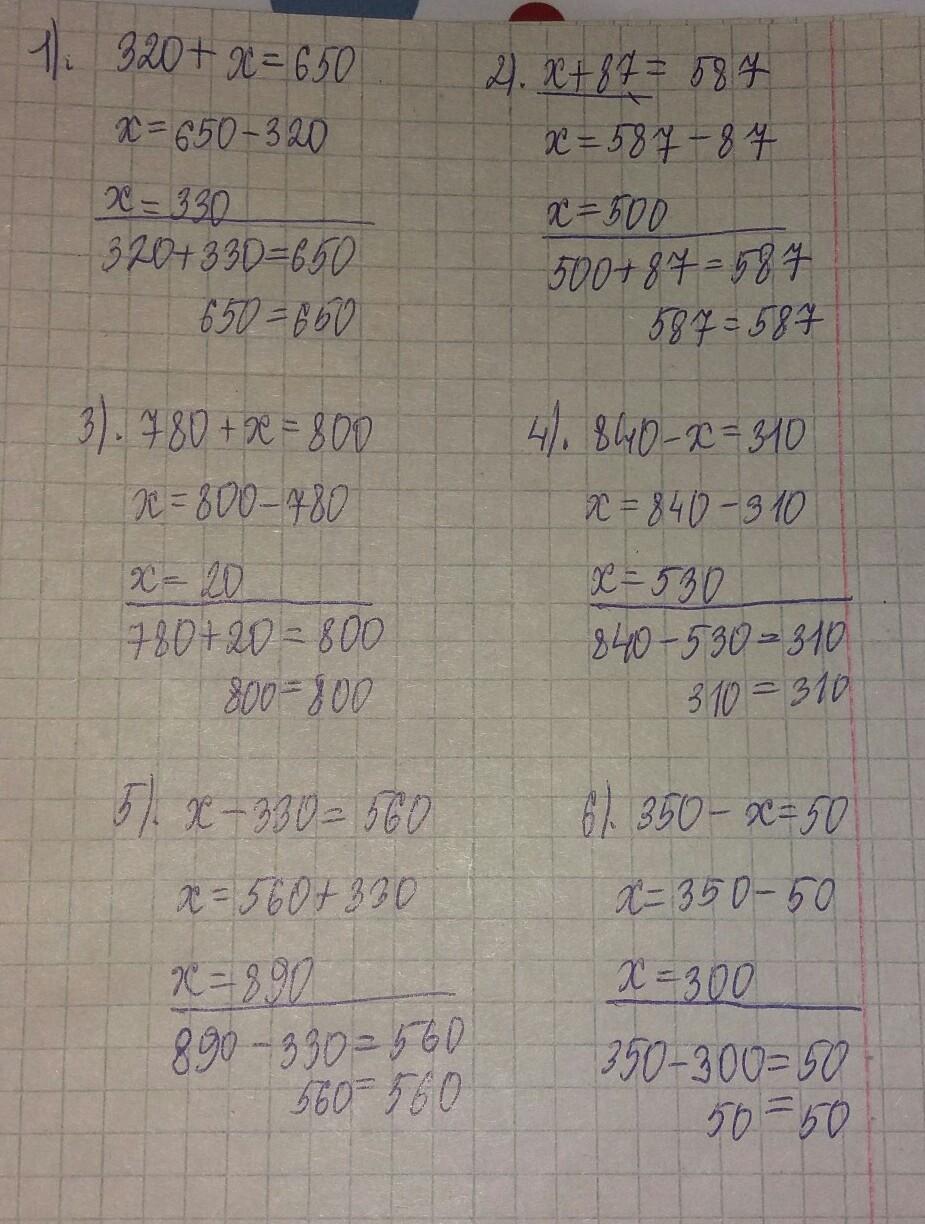 1). 320 + x = 650
x = 650 - 320
x = 330
320 + 330 = 650
650 = 650
2). x + 87 = 587
x = 587 - 87
x = 500
500 + 87 = 587
587 = 587
3). 780 + x = 800
x = 800 - 780
x = 20
780 + 20 = 800
800 = 800
4). 840 - x = 310
x = 840 - 310
x = 530
840 - 530 = 310
310 = 310
5). x - 330 = 560
x = 560 + 330
x = 890
890 - 330 = 560
560 = 560
6). 350 - x = 50
x = 350 - 50
x = 300
350 - 300 = 50
50 = 50